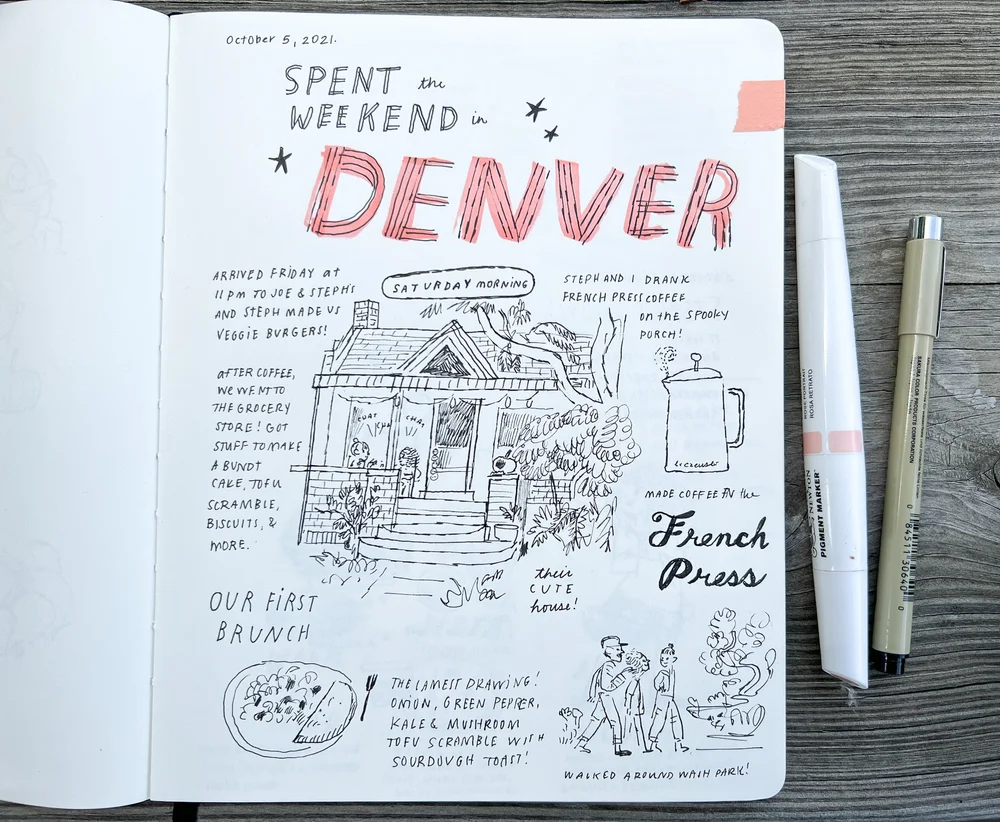 October 5, 2021.
SPENT the
WEEKEND in
DENVER
ARRIVED FRIDAY at
11 PM TO JOE & STEPH'S
AND STEPH MADE US
VEGGIE BURGERS!
SATURDAY MORNING
STEPH AND I DRANK
FRENCH PRESS COFFEE
on the SPOOKY
PORCH!
AFTER COFFEE,
WE WENT TO
THE GROCERY
STORE! GOT
STUFF TO MAKE
A BUNDT
CAKE, TOFU
SCRAMBLE,
BISCUITS, &
MORE.
CHAT
CHAT
le creuset
MADE COFFEE IN the
French
Press
their
CUTE
house!
OUR FIRST
BRUNCH
THE LAMEST DRAWING!
ONION, GREEN PEPPER,
KALE & MUSHROOM
TOFU SCRAMBLE WITH
SOURDOUGH TOAST!
WALKED AROUND WASH PARK!
ROSA RETRATO
NEWTON
PIGMENT MARKER
SAKURA COLOR PRODUCTS CORPORATION
0 84511 30640 0